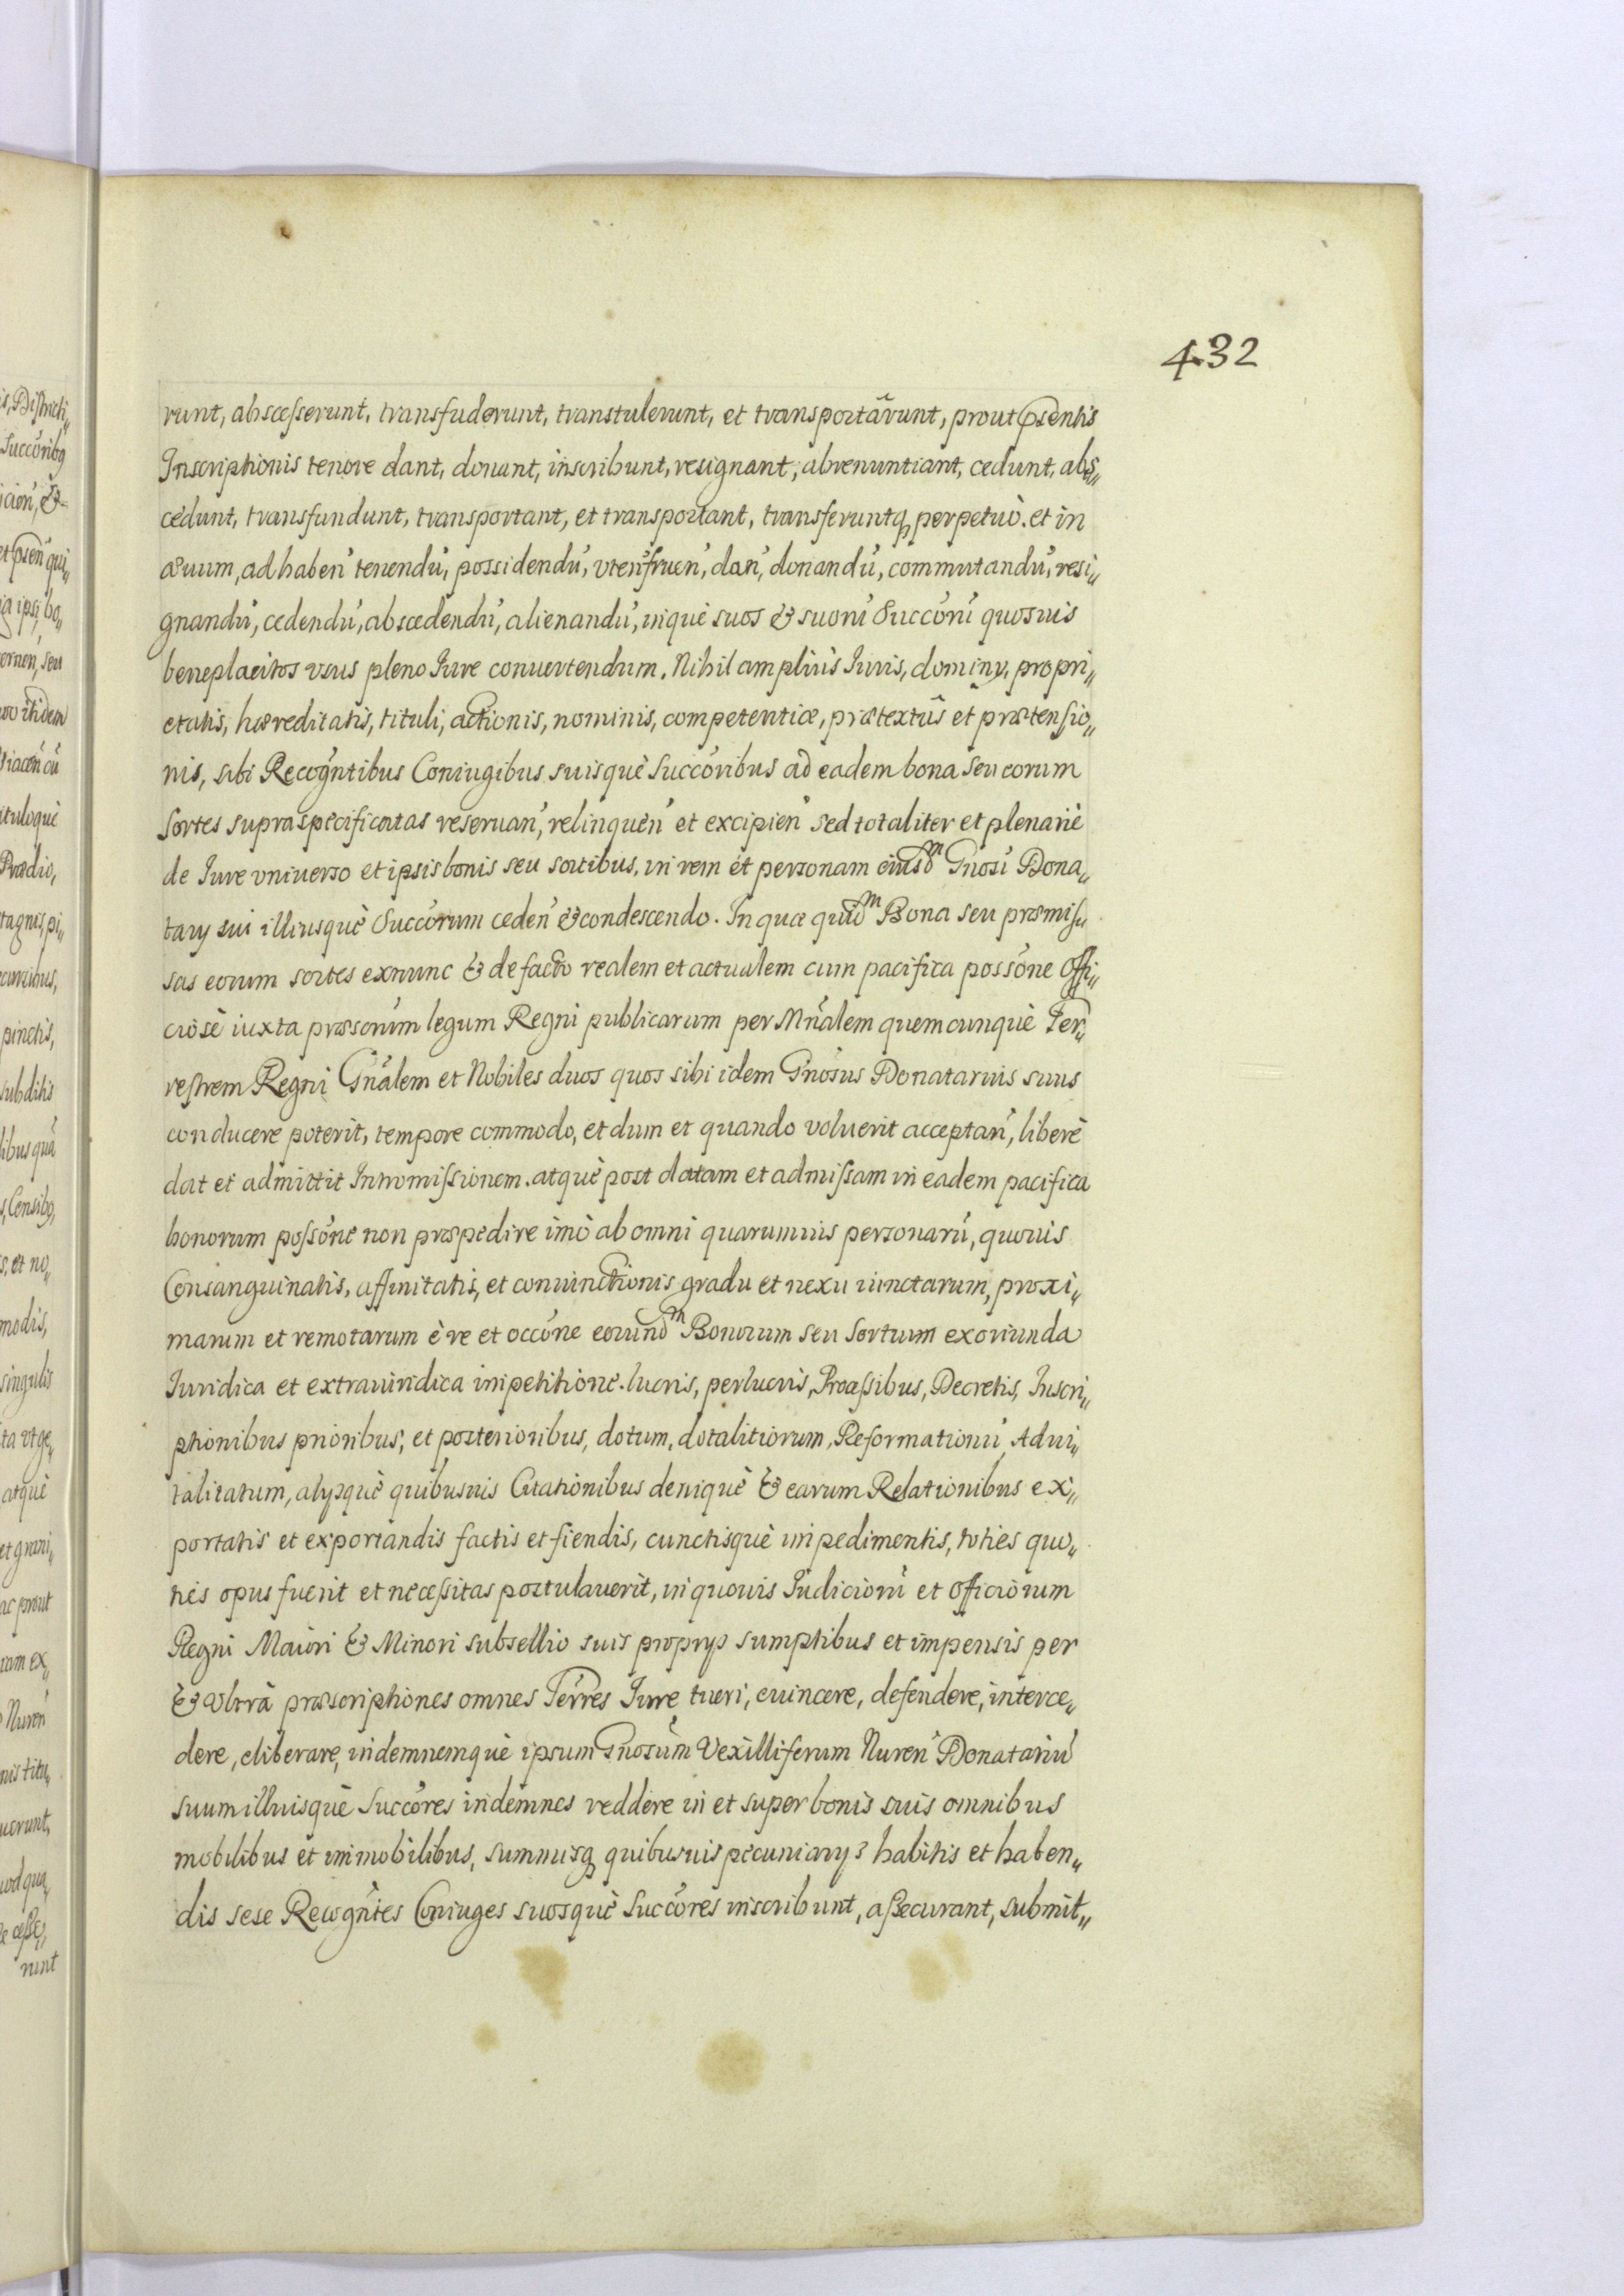 432
runt, abscesserunt, transfuderunt, transtulerunt, et transportârunt, prout pñsentis
Inscriptionis tenore dant, donant, inscribunt, resignant, abrenuntiant, cedunt, abs„
cedunt, transfundunt, transportant, et transportant, transferuntq perpetuò. et in
æuum, ad haben̄ tenendū, possidendū, vten̄ fruen̄, dan̄, donandū, commutandū, resi„
gnandū, cedendū, abscedendū, alienandū, inquè suos & suorū Succōrū quosuis
beneplacitos vsus pleno Iure conuertendum. Nihil amplius Iuris, dominy, propri„
etatis, hæreditatis, tituli, actionis, nominis, competentiæ, prætextûs et prætensio„
nis, sibi Recogn̄tibus Coniugibus suisquè succōribus ad eadem bona seu eorum
sortes supraspecificatas reseruan̄, relinquen̄ et excipien̄ sed totaliter et plenariè
de Iure vniuerso et ipsis bonis seu sortibus, in rem et personam eiusdm Gn̄osi Dona„
tary sui illiusquè Succōrum ceden̄ & condescendo. In quæ quidm Bona seu præmis„
sas eorum sortes exnunc & de facto realem et actualem cum pacifica possōne Offi„
ciosè iuxta præscrūm legum Regni publicarum per Mn̄alem quemcunquè Ter„
restrem Regni Gn̄alem et Nobiles duos quos sibi idem Gn̄osus Donatarius suus
conducere poterit, tempore commodo, et dum et quando voluerit acceptan̄, liberè
dat et admittit Intromissionem. atquè post datam et admissam in eadem pacifica
bonorum possōne non præpedire imò ab omni quarumuis personarū, quouis
Consanguinatis, affinitatis, et coniunctionis gradu et nexu iunctarum, proxi„
marum et remotarum è re et occōne eorundm Bonorum seu Sortium exoriunda
Iuridica et extraiuridica impetitione. lucris, perlucris, Processibus, Decretis, Inscri„
ptionibus prioribus, et posterioribus, dotum, dotalitiorum, Reformationū, Adui„
talitatum, alysquè quibusuis Citationibus deniquè & earum Relationibus ex„
portatis et exportandis factis et fiendis, cunctisquè impedimentis, toties quo„
ties opus fuerit et necessitas postulauerit, in quouis Iudiciorū et Officiorum
Regni Maiori & Minori subsellio suis proprys sumptibus et impensis per
& Vltrà præscriptiones omnes Terrēs Iure tueri, euincere, defendere, interce„
dere, eliberare, indemnemquè ipsum Gn̄osum Vexilliferum Nuren̄ Donatariū
suum illiusquè Succōres indemnes reddere in et super bonis suis omnibus
mobilibus et immobilibus, summisq quibusuis pecuniarys habitis et haben„
dis sese Recogn̄tes Coniuges suosquè Succōres inscribunt, assecurant, submit„